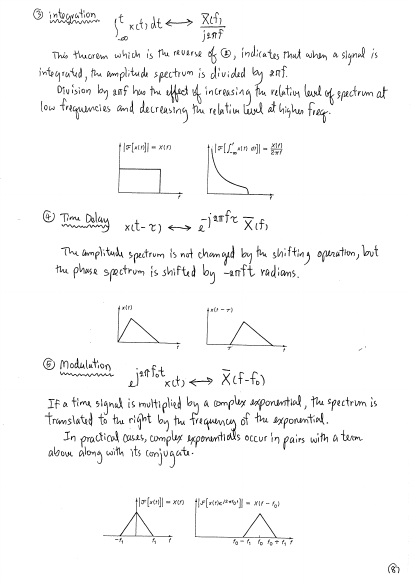 ③ integration ∫_{-∞}^{t} x(t) dt ⟷ X̄(f) / j2πf
This theorem which is the reverse of ②, indicates that when a signal is
integrated, the amplitude spectrum is divided by 2πf.
Division by 2πf has the effect of increasing the relative level of spectrum at
low frequencies and decreasing the relative level at higher freq.
|ℱ[x(t)]| = X(f)
f
|ℱ[∫_{-∞}^{t} x(t) dt]| = X(f)/2πf
f
④ Time Delay x(t-τ) ⟷ e^{-j2πfτ} X̄(f)
The amplitude spectrum is not changed by the shifting operation, but
the phase spectrum is shifted by -2πfτ radians.
x(t)
t
x(t - τ)
τ t
⑤ Modulation e^{j2πf₀t} x(t) ⟷ X̄(f-f₀)
If a time signal is multiplied by a complex exponential, the spectrum is
translated to the right by the frequency of the exponential.
In practical cases, complex exponentials occur in pairs with a term
above along with its conjugate.
|ℱ[x(t)]| = X(f)
-f₁ f₁ f
|ℱ[x(t)e^{j2πf₀t}]| = X(f - f₀)
f₀ - f₁ f₀ f₀ + f₁ f
⑧